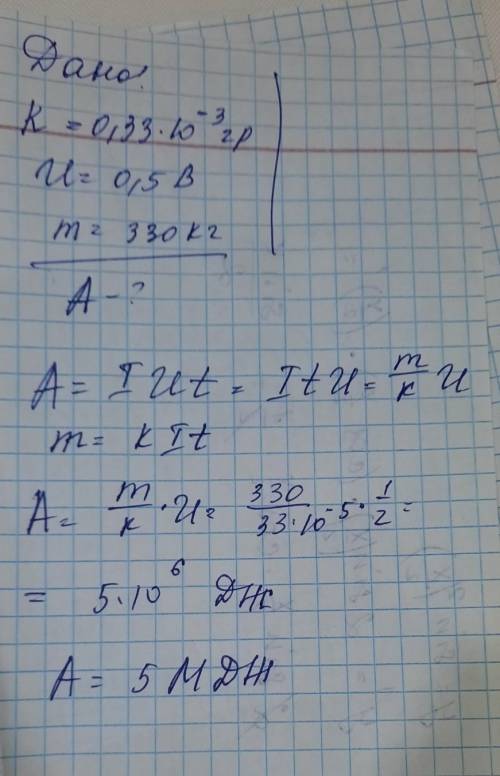 Дано:
K = 0,33·10⁻³ гр
U = 0,5 В
m = 330 кг
A - ?
A = I U t = I t U = m/k U
m = k I t
A = m/k · U = 330/33·10⁻⁵ · 1/2 =
= 5·10⁶ Дж
A = 5 МДж